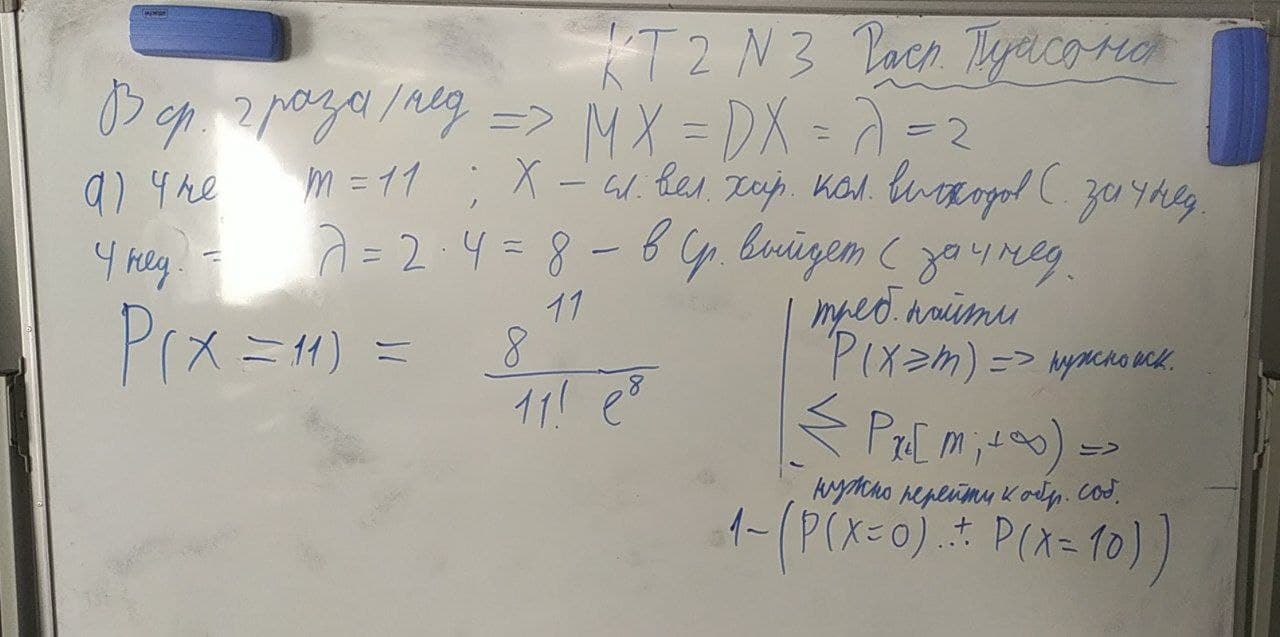 КТ2 N3 Расп. Пуасона
В ср. 2 раза/нед => MX = DX = λ = 2
а) 4 не m = 11 ; X – сл. вел. хар. кол. выходов С. за 4 нед.
4 нед. = λ = 2 · 4 = 8 – в ср. выйдет С за 4 нед.
P(X = 11) = 8^11 / 11! e^8
треб. найти
P(X ≥ m) => нужно иск.
≤ P x∈[m; +∞) =>
нужно перейти к обр. соб.
1 – (P(X=0) + ... P(X=10))